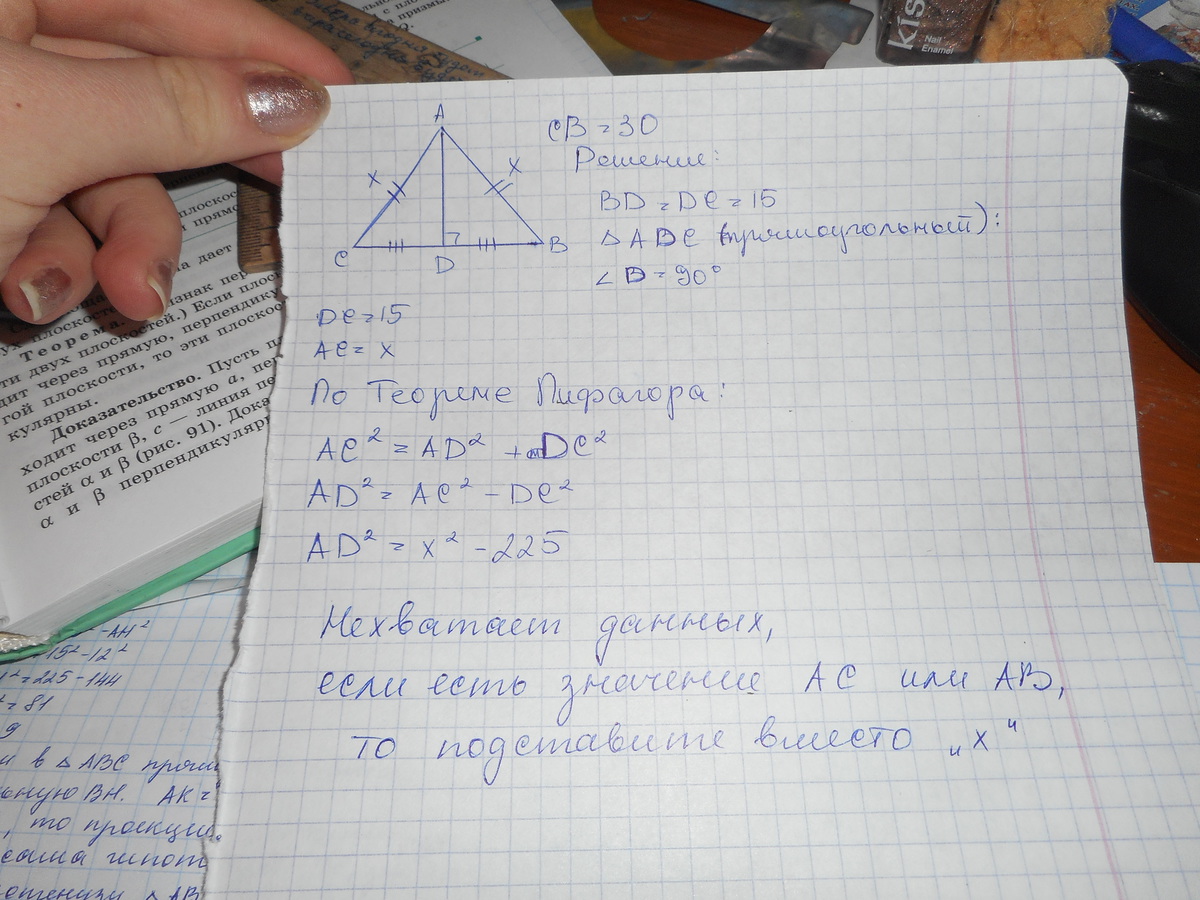 кis
Nail
Enamel
A
x
x
C
D
B
CB = 30
Решение:
BD = DC = 15
△ ADC (прямоугольный):
∠ D = 90°
DC = 15
AC = x
По Теореме Пифагора:
AC² = AD² + DC²
AD² = AC² - DC²
AD² = x² - 225
Нехватает данных,
если есть значение AC или AB,
то подставите вместо „x"
плоскос
прямо
на дает
знак пер
ух плоскосте
.) Если плос
Теорема.
ти двух плоскостей
дит через прямую, перпендику
гой плоскости, то эти плоско
кулярны.
Доказательство. Пусть п
ходит через прямую a, пе
плоскости β, c — линия пе
стей α и β (рис. 91). Дока
α и β перпендикуляр
-AH²
=15²-12²
²=225-144
²=81
9
и в △ ABC прям
ную BH. AK =
, то проекци
сама гипот
△ AB